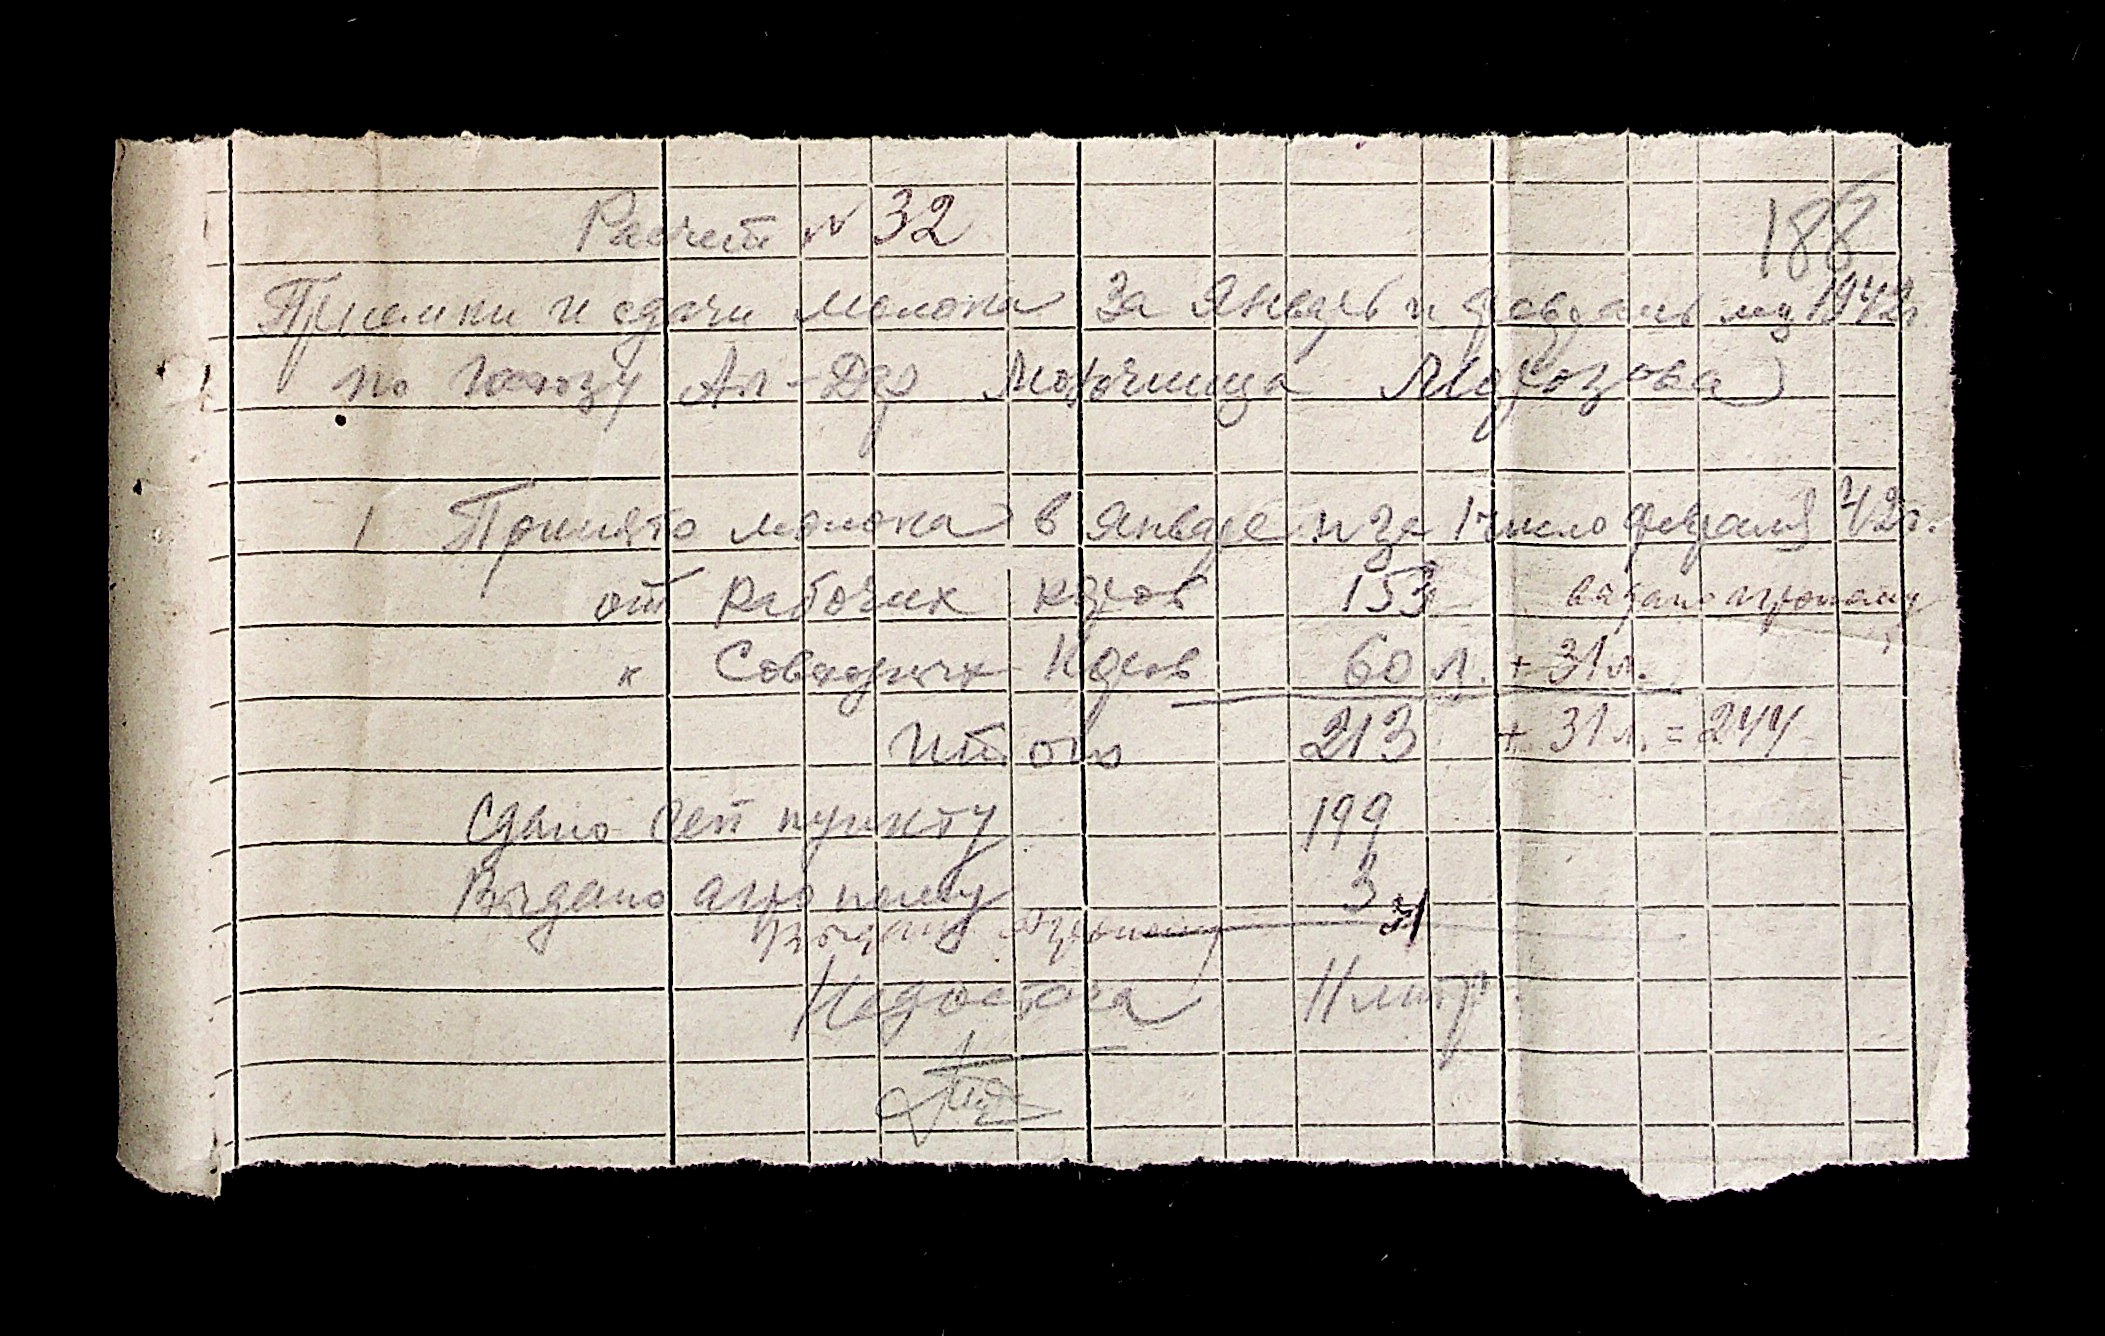 188
Расчет № 32
Приемки и сдачи молока за Январь и февраль мц 1942г
по Ал-Дер Молочница Морозова
1 Принято молока в январе и за 1 число февраля 42г.
от рабочих коров 153 выдано агроному
" Совхозных Коров 60 л. + 31 л.
Итого 213 + 31 л. = 244
Сдано Сеп пункту 199
Выдано агроному 3
Выдано агроному 31
Недостача 11 литр.